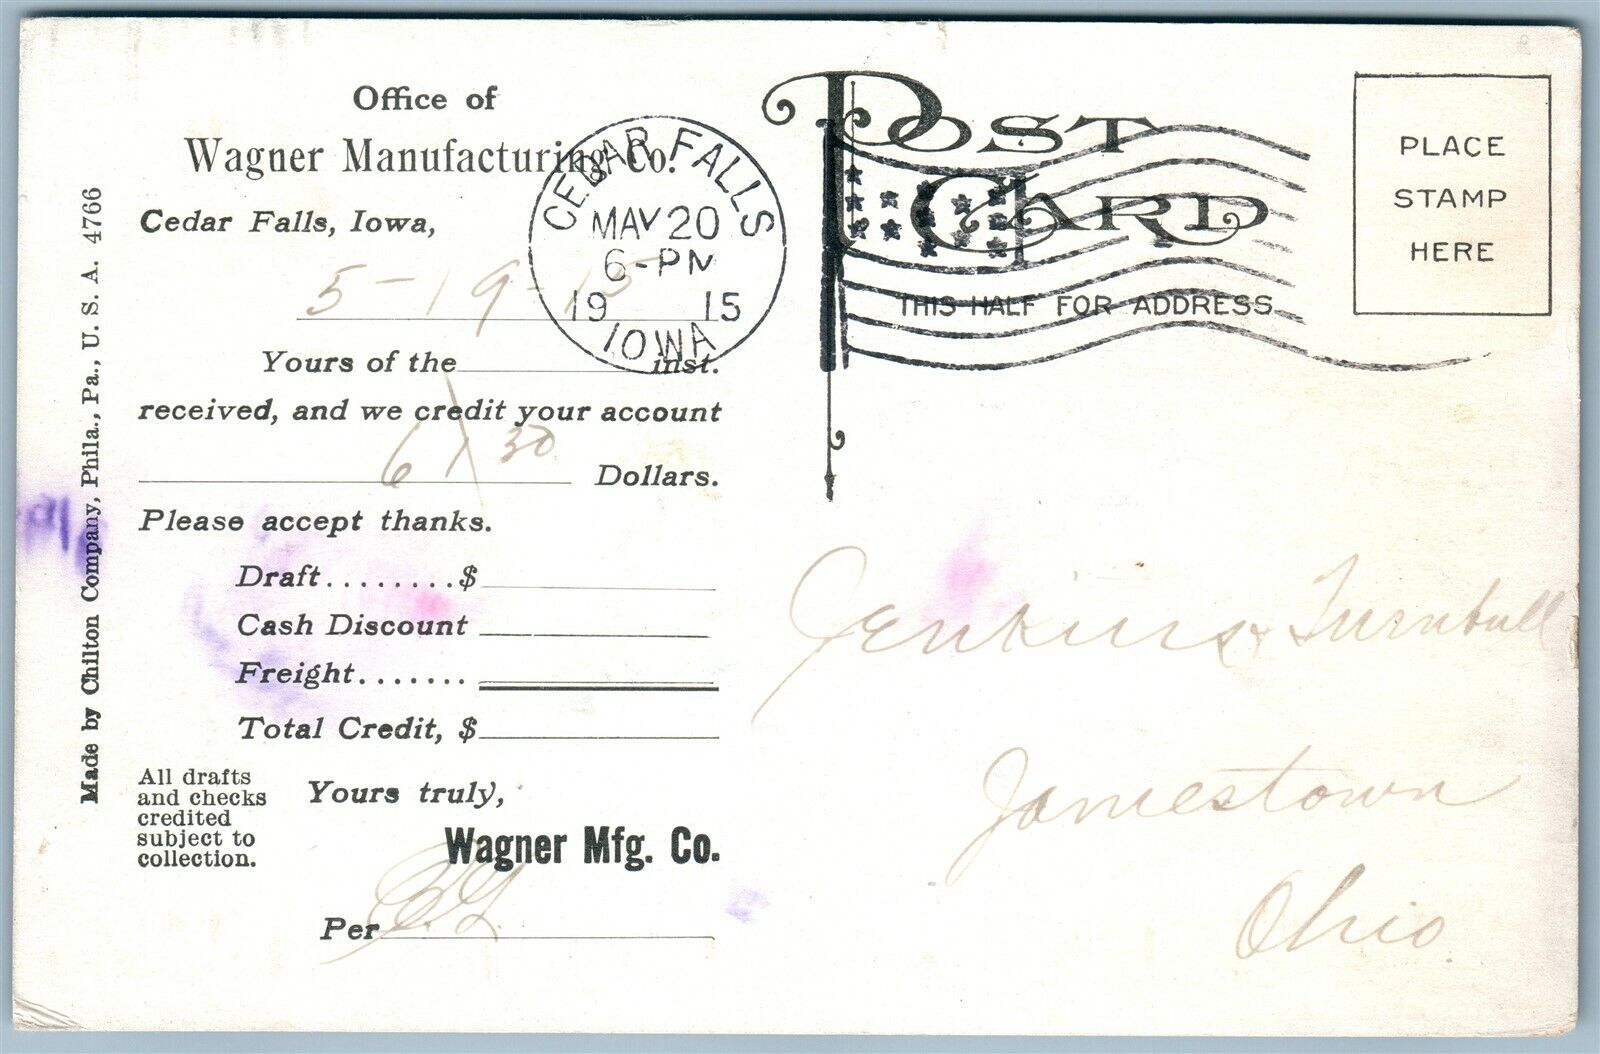 Office of
Wagner Manufacturing Co.
Cedar Falls, Iowa,
5-19-15
Yours of the inst.
received, and we credit your account
6 30 Dollars.
Please accept thanks.
Draft........$
Cash Discount
Freight.......
Total Credit, $
All drafts
and checks
credited
subject to
collection.
Yours truly,
Wagner Mfg. Co.
Per
Made by Chilton Company, Phila., Pa., U. S. A. 4766
CEDAR FALLS
MAY 20
6-PM
19 15
IOWA
POST
CARD
THIS HALF FOR ADDRESS
PLACE
STAMP
HERE
Jenkins & Turnbull
Jamestown
Ohio.